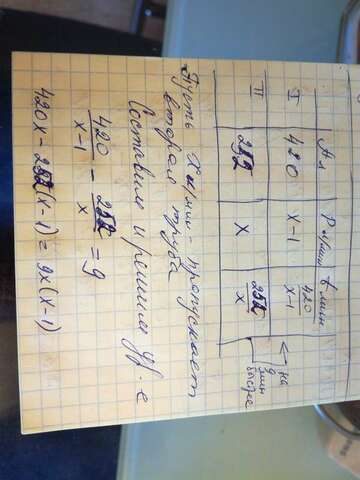 А л P л/мин t мин
I 420 x-1 420/x-1 < на 9 мин быстрее
II 252 x 252/x
Пусть x л/мин - пропускает
вторая труба
Составим и решим ур-е
420/x-1 - 252/x = 9
420x - 252(x-1) = 9x(x-1)